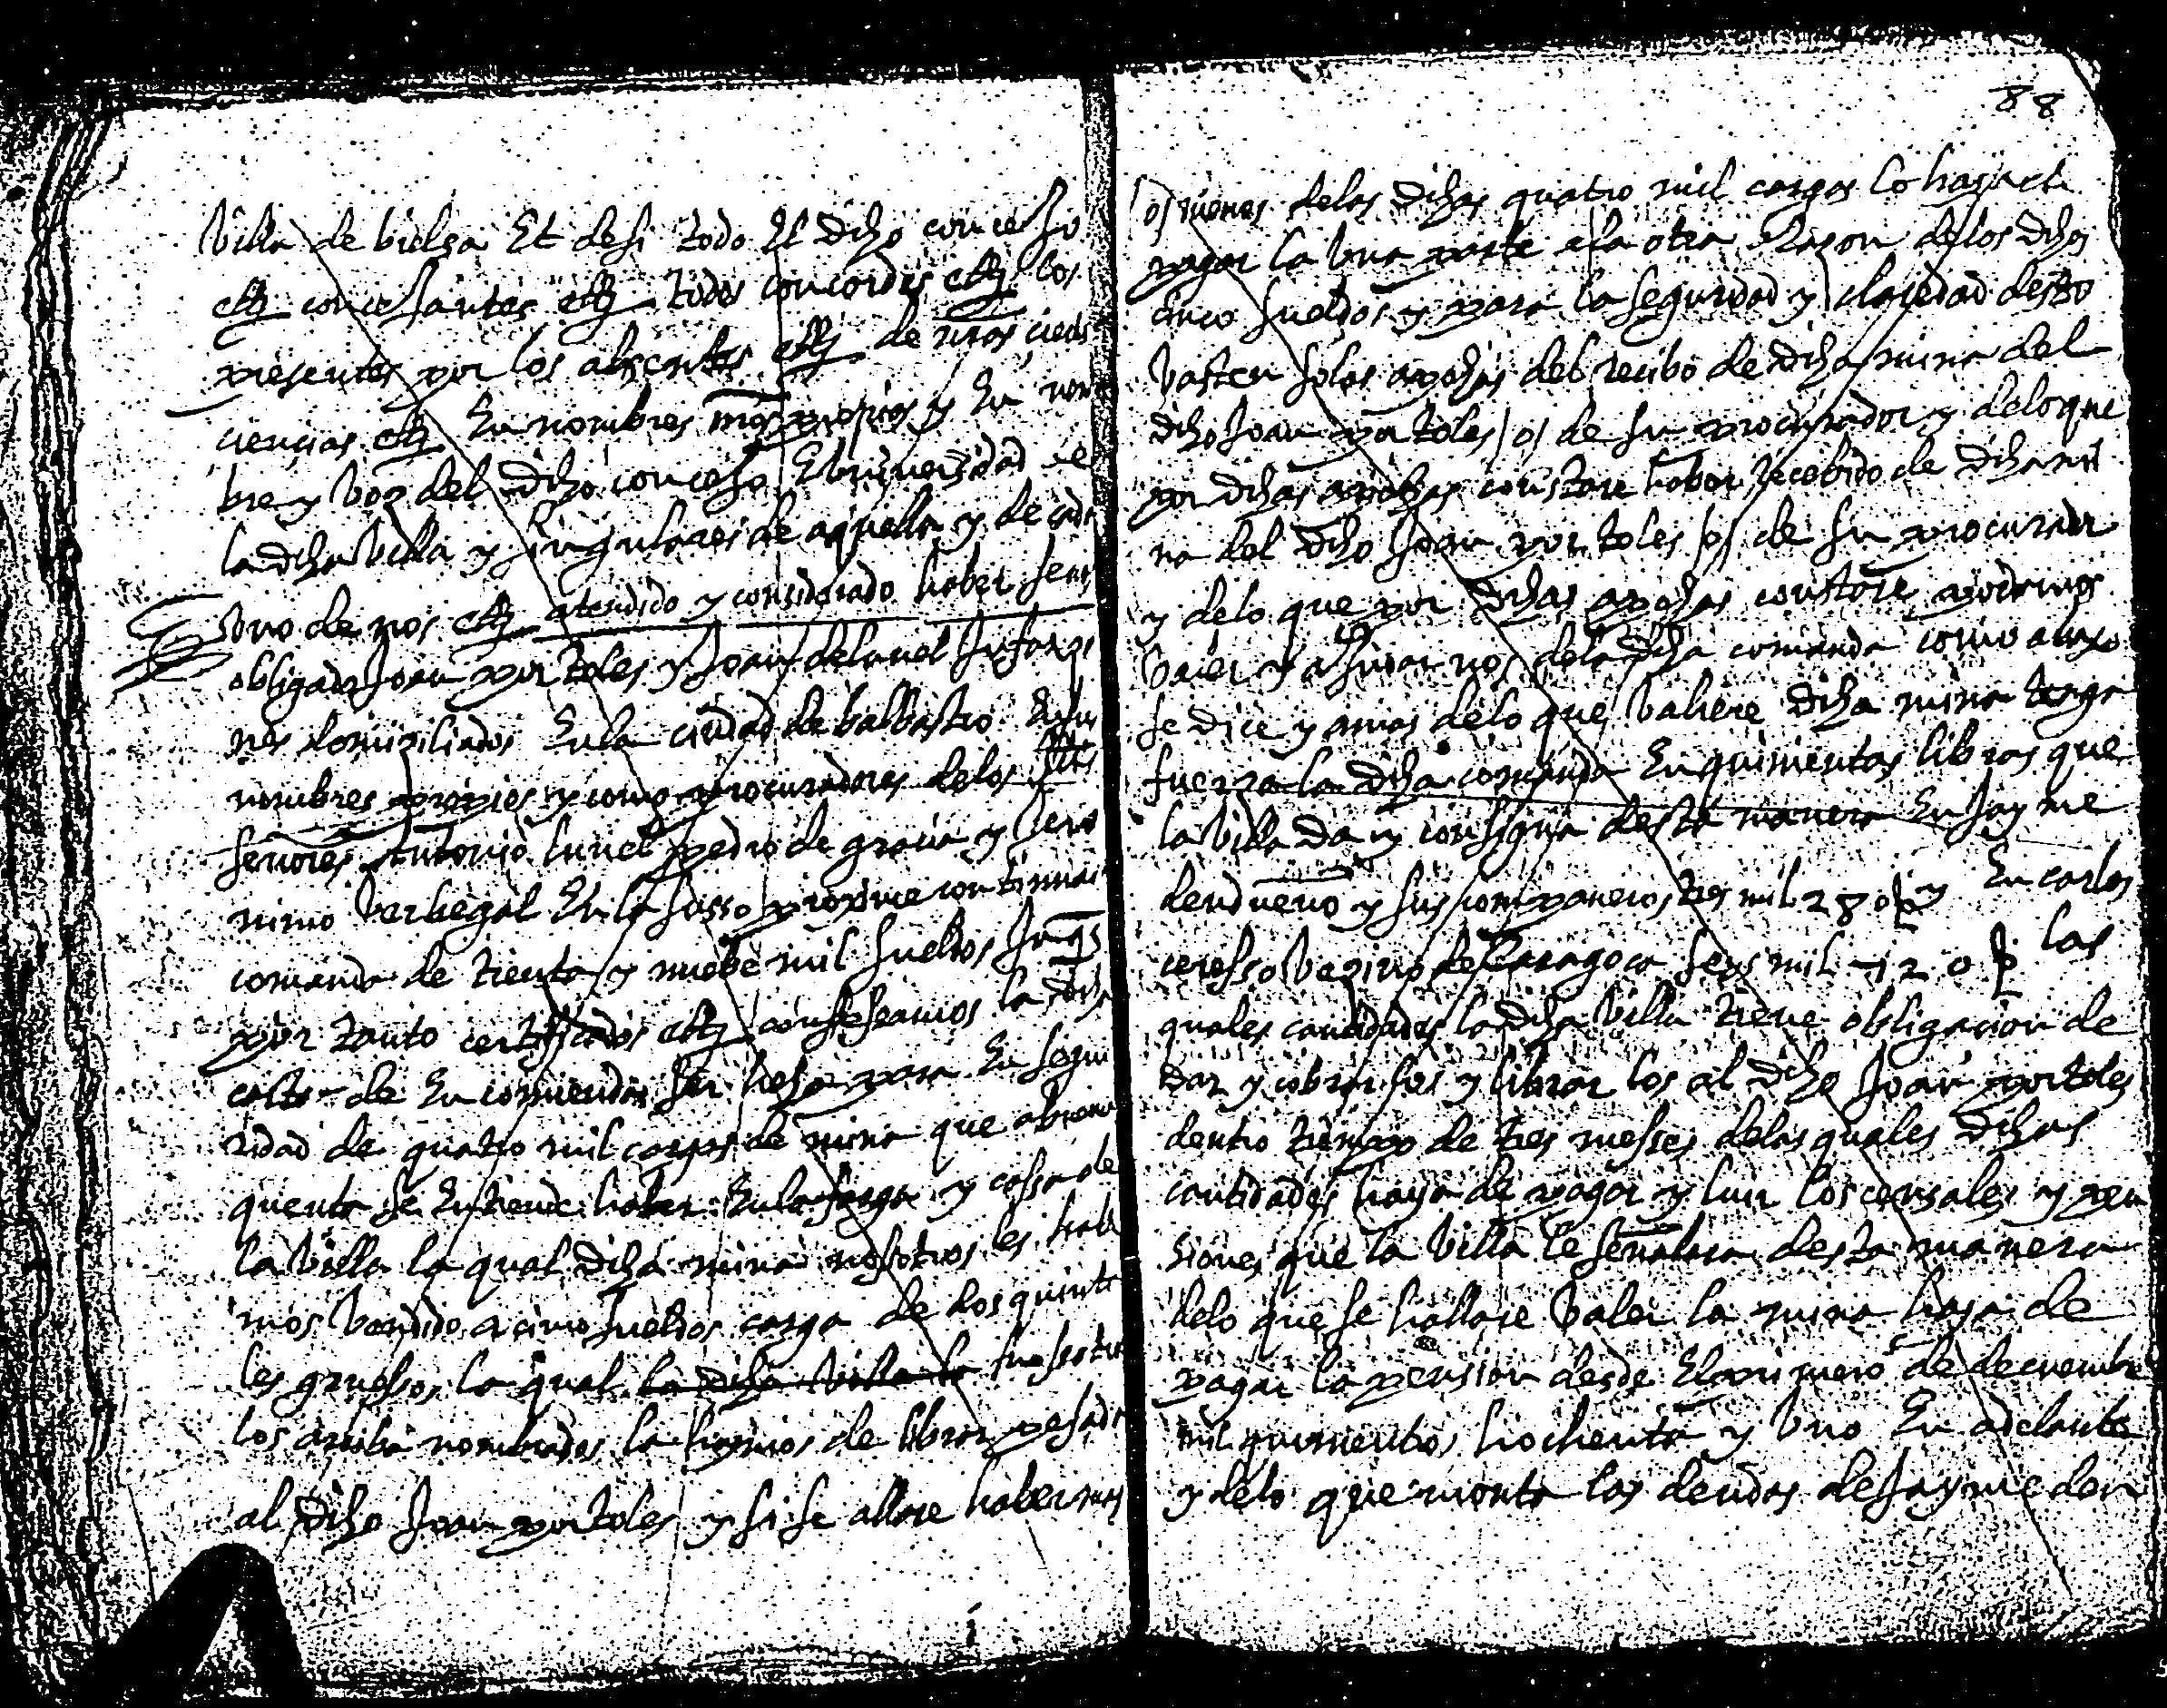 Villa de bielsa Et desi todo El dicho concejo
etc concejantes etc todos concordes etc los
presentes por los absentes etc de nras cier
ciencias etc En nombres nros propios y En nom
bre y boz del dicho concejo E universidad de
la dicha Villa y singulares de aquella y de cada
uno de nos etc atendido y considerado haber se nos
obligado Joan portoles y Joan de lunel Infanço
nes domiziliados En la ciudad de balbastro En sus
nombres propios y como procuradores de los
señores Antonio lunel pedro de gracia y Jero
nimo Verbegal En la susso proxime continuada
comanda de trienta y nuebe mil sueldos Jaqs
por tanto certificados etc confesamos la dicha
carta de En comienda ser hecha para En segu
ridad de quatro mil cargas de mina que abran
quenta se Entiende haber En la farga y cassa de
la Villa la qual dicha mina nosotros les habe
mos Vendido a cinco sueldos carga de dos quinta
les gruessos la qual la dicha Villa la nossotros
los arriba nombrados la hayamos de librar pesada
al dicho Joan portoles y si se allare haber mas
88
o menos de las dichas quatro mil cargas lo haya de
pagar la una parte a la otra Razon de los dichos
cinco sueldos y para la seguridad y claredad desto
basten solas apochas del recibo de dicha mina del
dicho Joan portoles o de su procurador y de lo que
por dichas apochas constare haber recebido de dicha mi
na del dicho Joan portoles o de su procurador
y de lo que por dichas apochas constare podamos
baler y ajudar nos de la dicha comanda como abaxo
se dice y amas de lo que Valiere dicha mina tenga
fuerza la dicha comanda En quinientas libras que
la Villa da y consigna desta manera En Jayme
dendueno y sus companeros tres mil 280 s y En carlos
ceresso Vezino de Caragoca seys mil 120 s las
quales cantidades la dicha Villa tiene obligacion de
dar y cobrar los y librar los al dicho Joan portoles
dentro tiempo de tres messes de las quales dichas
cantidades haya de pagar y luir los censales y pen
siones que la Villa le señalara desta manera
de lo que se hallare Valer la mina haya de
pagar la pension desde El primero de decembre
mil quinientos hochenta y Uno En adelante
y de lo que monta las deudas de Jayme den